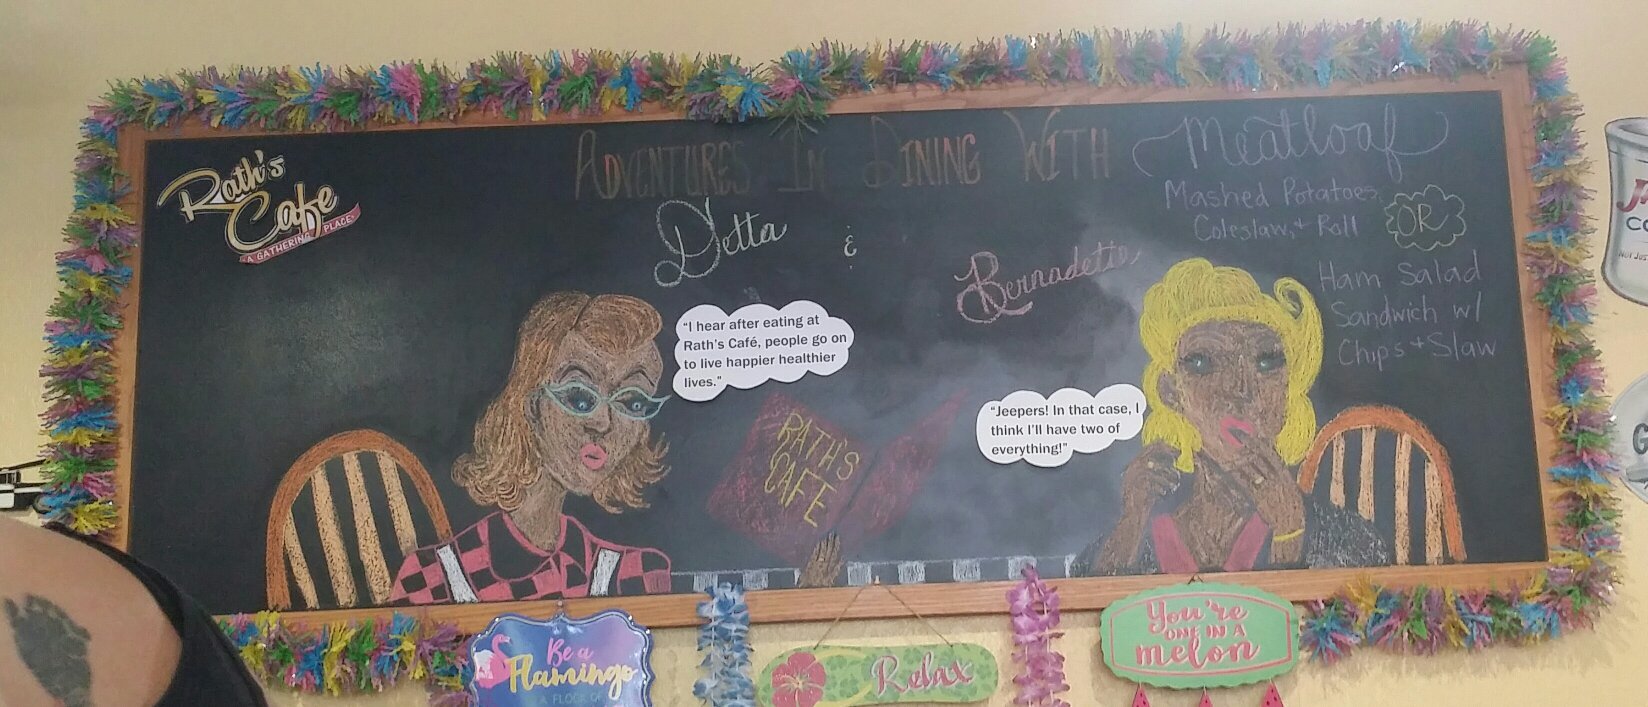 Rath's
Cafe
A GATHERING PLACE
ADVENTURES IN DINING WITH
Detta & Bernadette
Meatloaf
Mashed Potatoes
Coleslaw, + Roll
OR
Ham Salad
Sandwich w/
Chips + Slaw
"I hear after eating at
Rath's Café, people go on
to live happier healthier
lives."
"Jeepers! In that case, I
think I'll have two of
everything!"
RATH'S
CAFE
Be a
Flamingo
A FLOCK OF
Relax
You're
ONE IN A
melon